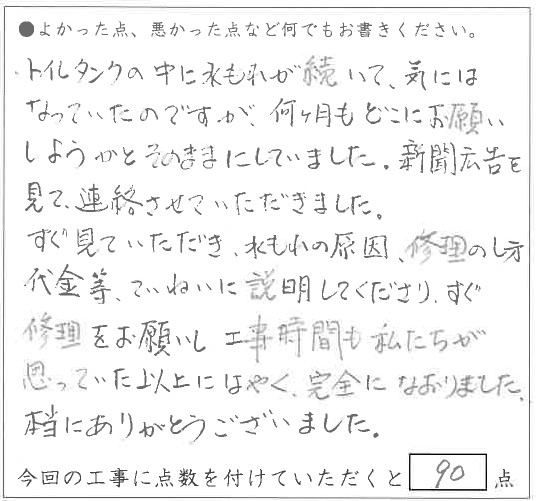 ●よかった点、悪かった点など何でもお書きください。
トイレタンクの中に水もれが続いて、気には
なっていたのですが、何ヶ月もどこにお願い
しようかとそのままにしていました。新聞広告を
見て、連絡させていただきました。
すぐ見ていただき、水もれの原因、修理のし方
代金等、ていねいに説明してくださり、すぐ
修理をお願いし工事時間も私たちが
思っていた以上にはやく、完全になおりました、
本当にありがとうございました。
今回の工事に点数を付けていただくと 90 点